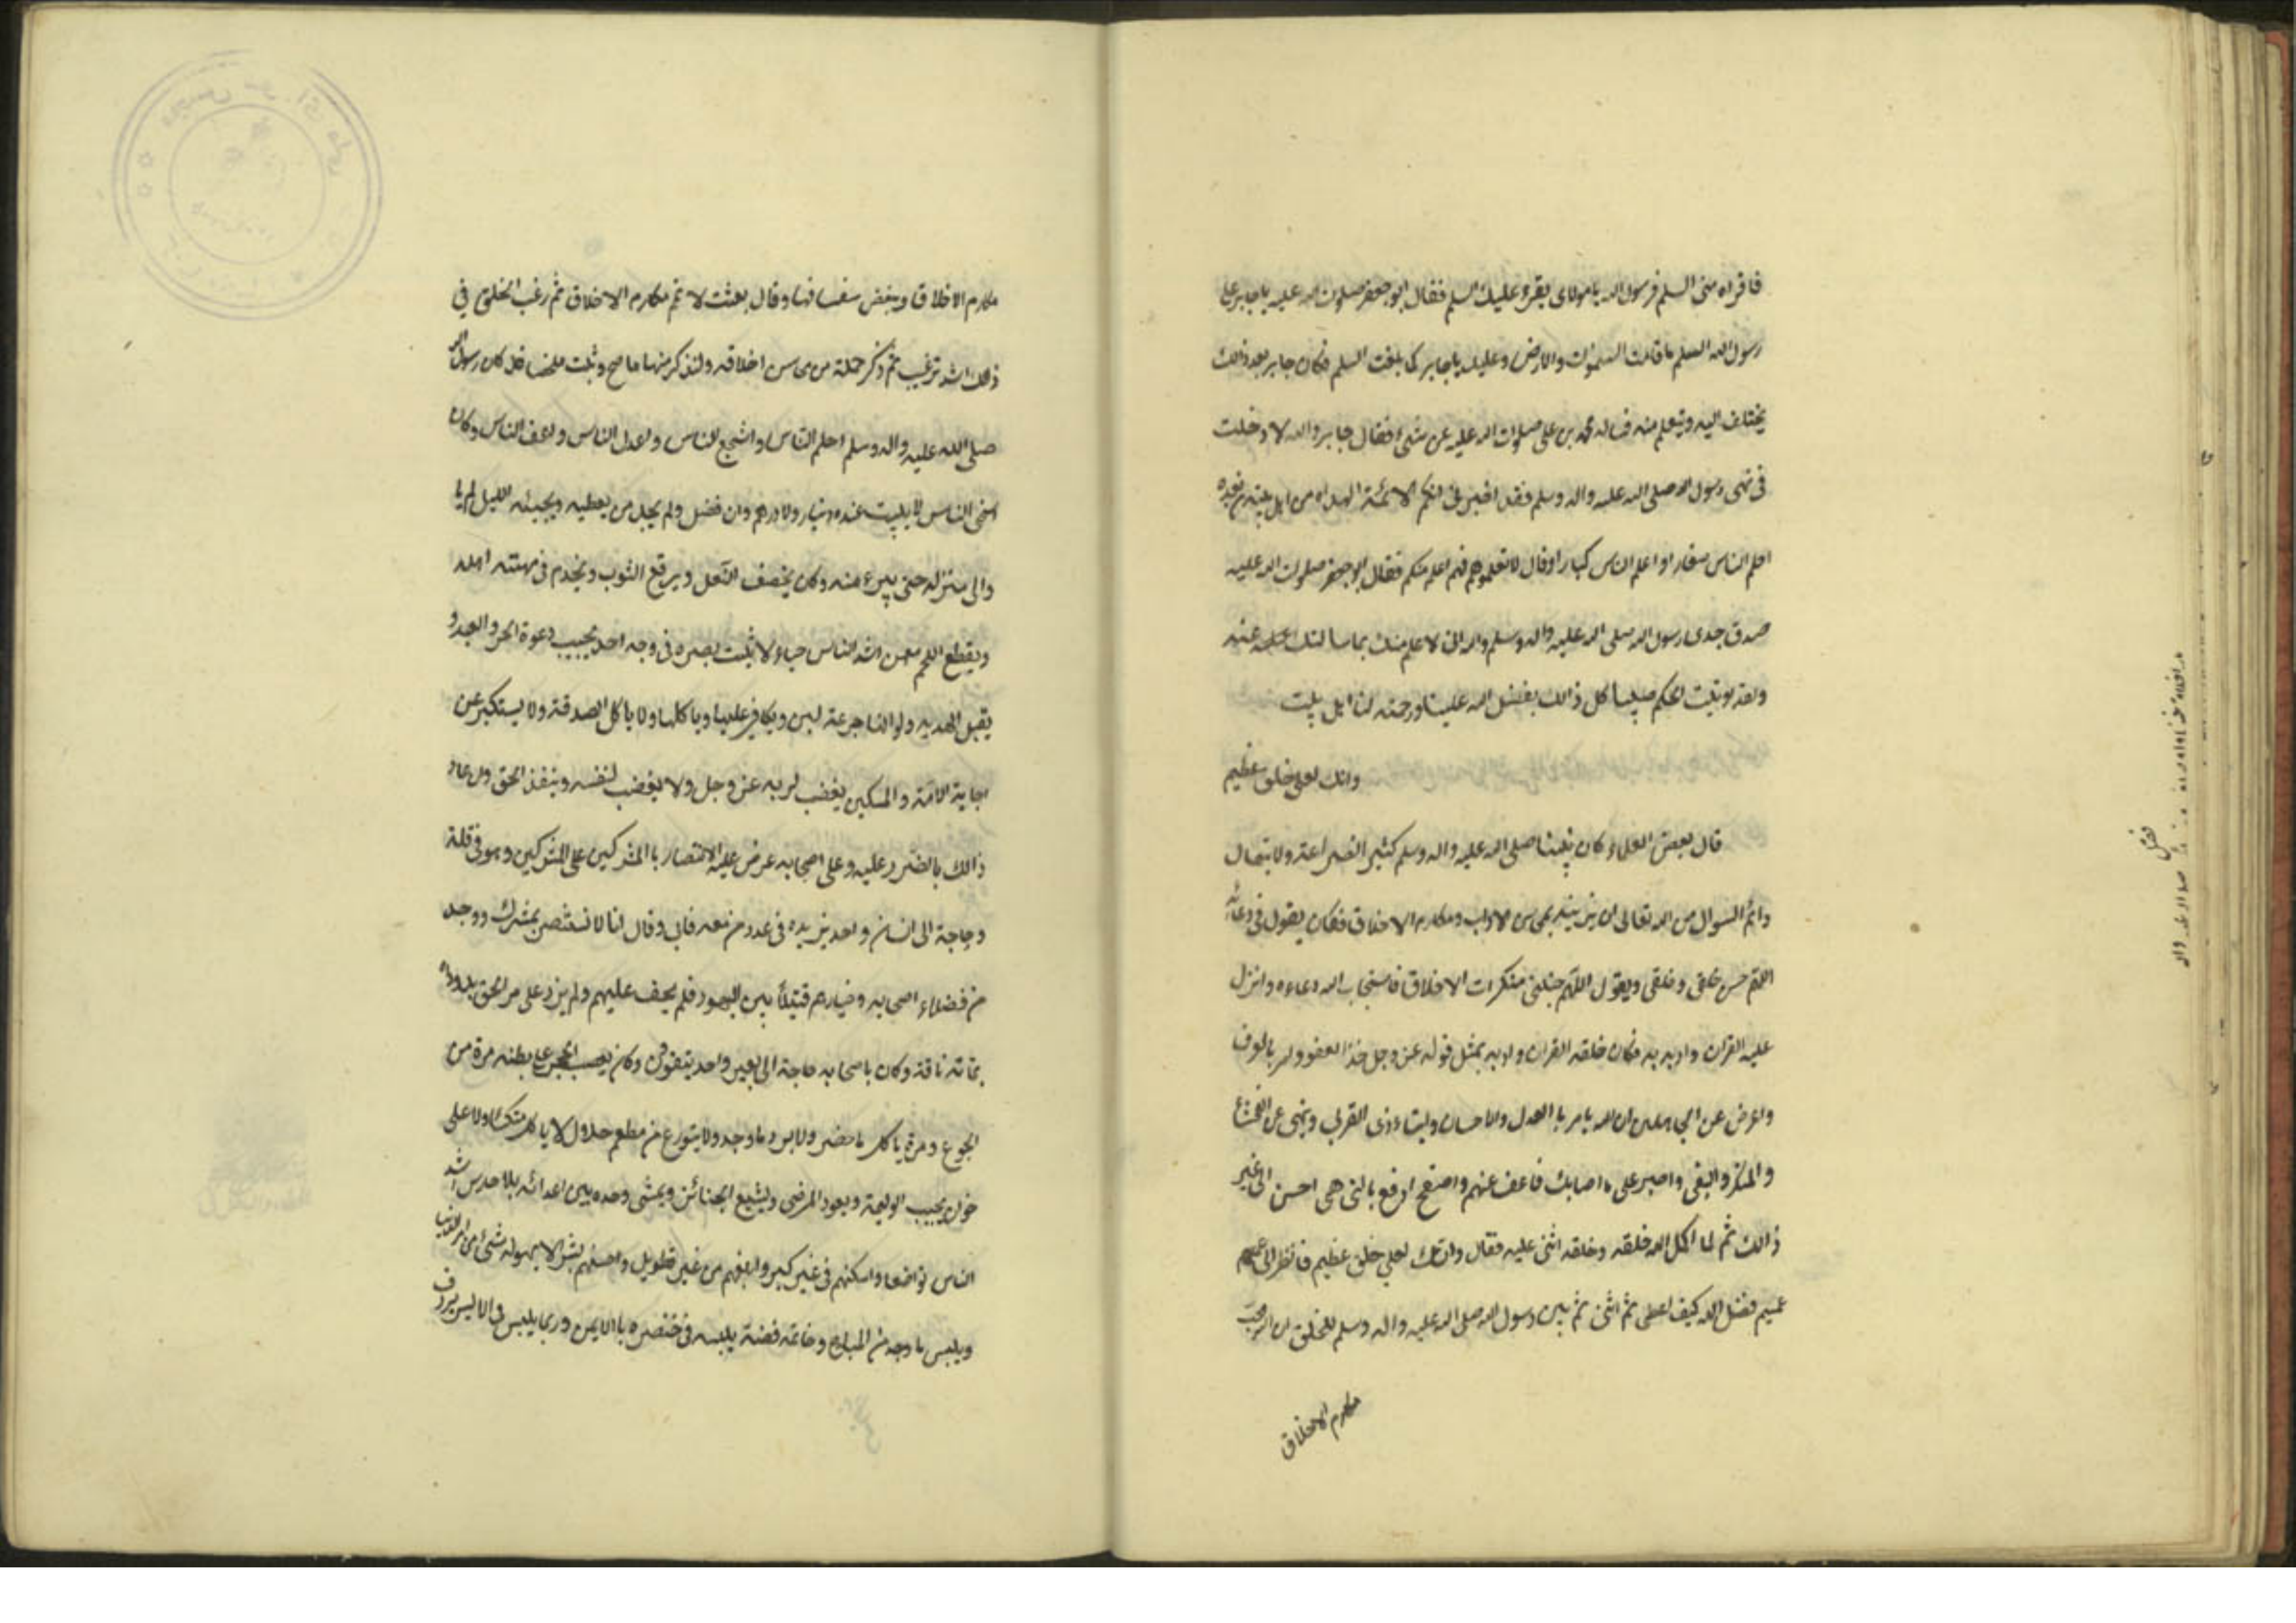 فاقراه منى السلم فرسول الله يا مولاى يقرء عليك السلم فقال ابو جعفر صلوات الله عليه يا جابر على
رسول الله السلم ما قامت السموات والارض وعليك يا جابر كما بلغت السلم فكان جابر بعد ذالك
يختلف اليه ويتعلم منه فساله محمد بن على صلوات الله عليه عن شئ فقال جابر والله لا دخلت
فى نهى رسول الله صلى الله عليه واله وسلم فقد اخبرنى انكم الائمة الهداه من اهل بيته من بعده
احلم الناس صغارا و اعلم الناس كبارا وقال لا تعلموهم فهم اعلم منكم فقال ابو جعفر صلوات الله عليه
صدق جدى رسول الله صلى الله عليه واله وسلم والله انى لا علم منك بما سالتك عنه
ولقد اوتيت الحكم صبيا كل ذالك بفضل الله علينا ورحمته لنا اهل بيت
وانك لعلى خلق عظيم
قال بعض العلماء كان نبينا صلى الله عليه واله وسلم كثير الضراعة والابتهال
دائم السوال من الله تعالى ان يزينه بمحاسن الاداب ومكارم الاخلاق فكان يقول فى دعائه
اللهم حسن خلقى وخلقى ويقول اللهم جنبنى منكرات الاخلاق فاستجاب الله دعاءه وانزل
عليه القران وادبه به فكان خلقه القران وادبه بمثل قوله عز وجل خذ العفو وامر بالعرف
واعرض عن الجاهلين ان الله يامر باالعدل والاحسان وايتاء ذى القربى وينهى عن الفحشاء
والمنكر والبغى واصبر على ما اصابك فاعف عنهم واصفح ادفع بالتى هى احسن الى غير
ذالك ثم لما اكمل الله خلقه وخلقه اثنى عليه فقال وانك لعلى خلق عظيم فانظر الى عميم
عميم فضل الله كيف اعطى ثم اثنى ثم بين رسول الله صلى الله عليه واله وسلم للخلق ان الله يحب
مكارم الاخلاق
فصل
مكارم الاخلاق ويبغض سفسافها وقال بعثت لا تمم مكارم الاخلاق ثم رغب الخلق فى
ذالك اشد ترغيب ثم ذكر جملة من محاسن اخلاقه ولنذكر منها ما صح وثبت ملخصا قال كان رسول الله
صلى الله عليه واله وسلم احلم الناس واشجع الناس واعدل الناس واعف الناس وكان
اسخى الناس لا يبيت عنده دينار ولا درهم وان فضل ولم يجد من يعطيه ويجيئه الليل لم يا
والى منزله حتى يبرء منه وكان يخصف النعل ويرقع الثوب ويخدم فى مهنته اهله
ويقطع اللحم معهن اشد الناس حياء لا يثبت بصره فى وجه احد يجيب دعوة الحر والعبد و
يقبل الهديه ولو انها جرعة لبن ويكافى عليها وياكلها ولا ياكل الصدقة ولا يستكبر عن
اجابة الامة والمسكين يغضب لربه عز وجل ولا يغضب لنفسه وينفذ الحق وان عاد
ذالك بالضرر عليه وعلى اصحابه عرض عليه الانتصار باالمشركين على المشركين وهو فى قلة
وحاجة الى انسان واحد يزيده فى عدد من معه فابى وقال انا لا نستنصر بمشرك ووجد
من فضلاء اصحابه وخيارهم قتيلا بين اليهود فلم يحف عليهم ولم يزد على مر الحق بل وداه
بمائة ناقة وكان باصحابه حاجة الى بعير واحد يتقوون وكان يعصب الحجر على بطنه مرة من
الجوع ومرة ياكل ما حضر ولا يرد ما وجد ولا يتورع من مطعم حلال لا ياكل متكئا ولا على
خوان يجيب الوليمة ويعود المرضى ويشيع الجنائز ويمشى وحده بين اعدائه بلا حارس اشد
الناس تواضعا واسكنهم فى غير كبر وابلغهم من غير تطويل واحسنهم بشرا لا يهوله شئ من امر الدنيا
ويلبس ما وجد من المباح وخاتمه فضة يلبسه فى خنصره باالايمن وربما يلبس فى الايسر يردف